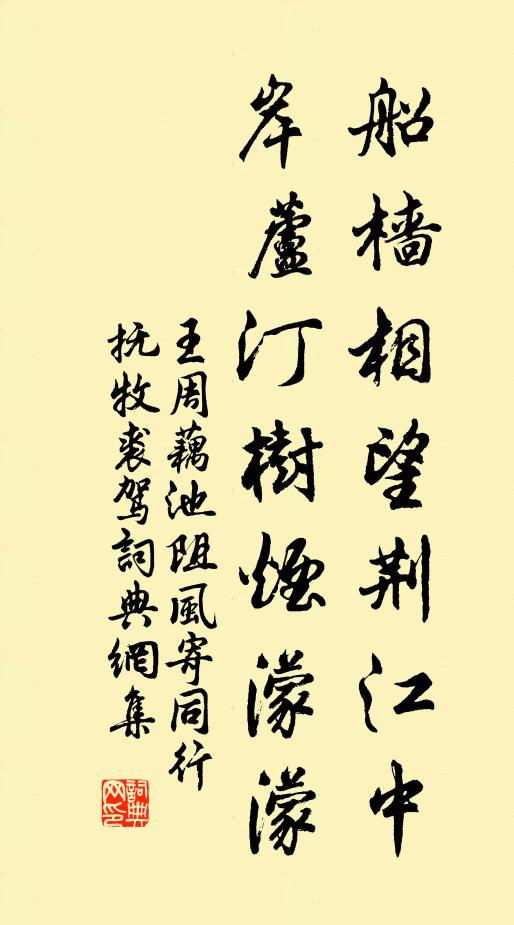 船檣相望荆江中
岸蘆汀樹煙濛濛
王周藕池阻風寄同行
抚牧裘駕詞典網集
詞典